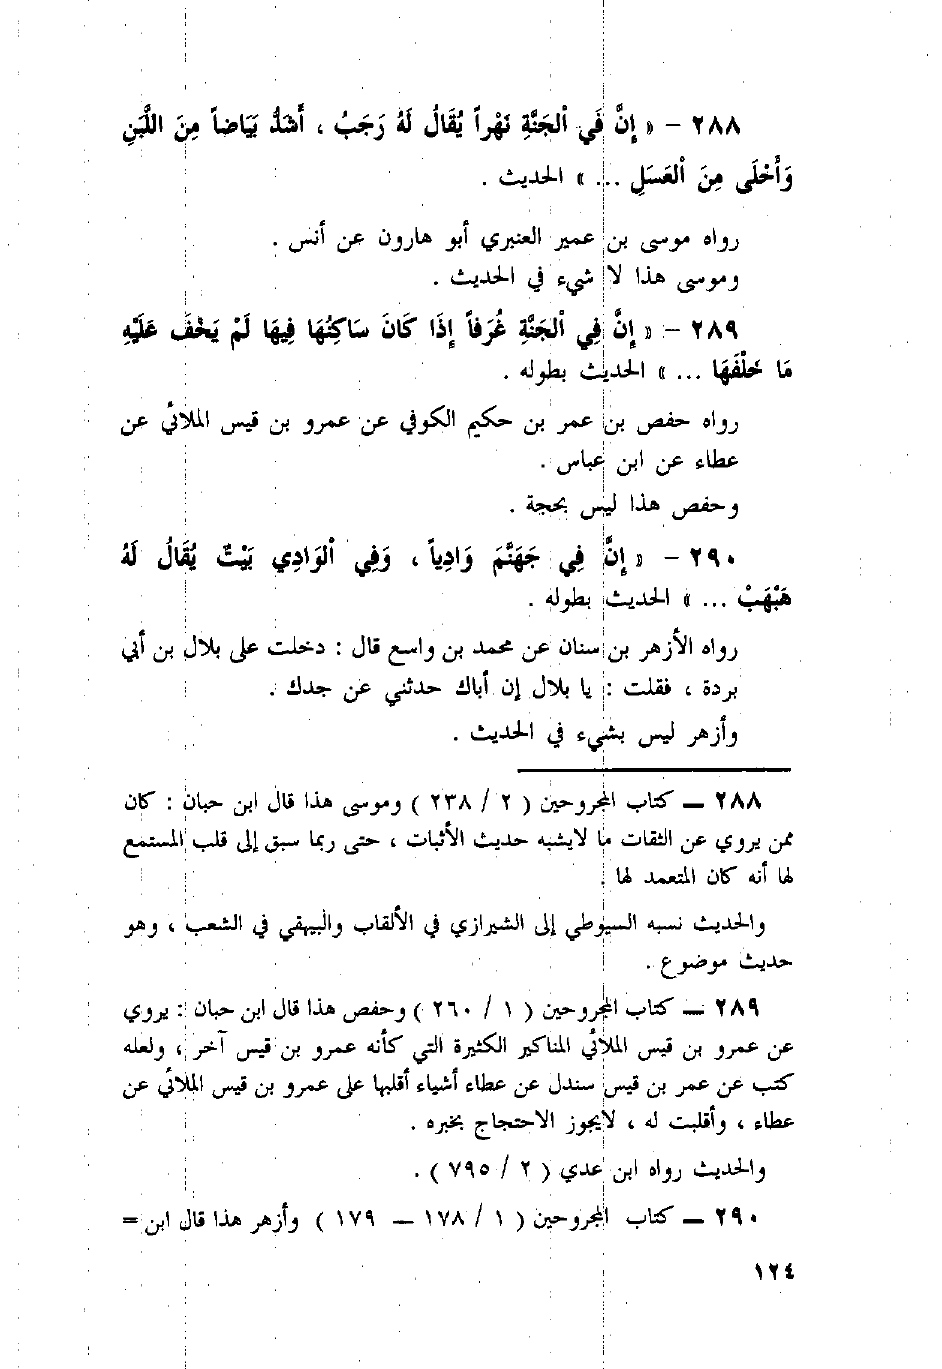 ٢٨٨ - « إِنَّ فَي اْلجَنَّةِ نَهْراً يُقَالُ لَهُ رَجَبُ ، أَشَدُّ بَيَاضاً مِنَ اللَّبَنِ
وَأَحْلَى مِنَ اْلعَسَلِ ... » الحديث .
رواه موسى بن عمير العنبري أبو هارون عن أنس .
وموسى هذا لا شيء في الحديث .
٢٨٩ - « إِنَّ فِي اْلجَنَّةِ غُرَفاً إِذَا كَانَ سَاكِنُهَا فِيهَا لَمْ يَخْفَ عَلَيْهِ
مَا خَلْفَهَا ... » الحديث بطوله .
رواه حفص بن عمر بن حكيم الكوفي عن عمرو بن قيس الملائي عن
عطاء عن ابن عباس .
وحفص هذا ليس بحجة .
٢٩٠ - « إِنَّ فِي جَهَنَّمَ وَادِياً ، وَفِي اْلوَادِي بَيْتٌ يُقَالُ لَهُ
هَبْهَبْ ... » الحديث بطوله .
رواه الأزهر بن سنان عن محمد بن واسع قال : دخلت على بلال بن أبي
بردة ، فقلت : يا بلال إن أباك حدثني عن جدك .
وأزهر ليس بشيء في الحديث .
٢٨٨ ــ كتاب المجروحين ( ٢ / ٢٣٨ ) وموسى هذا قال ابن حبان : كان
ممن يروي عن الثقات ما لايشبه حديث الأثبات ، حتى ربما سبق إلى قلب المستمع
لها أنه كان المتعمد لها .
والحديث نسبه السيوطي إلى الشيرازي في الألقاب والبيهقي في الشعب ، وهو
حديث موضوع .
٢٨٩ ــ كتاب المجروحين ( ١ / ٢٦٠ ) وحفص هذا قال ابن حبان : يروي
عن عمرو بن قيس الملائي المناكير الكثيرة التي كأنه عمرو بن قيس آخر ، ولعله
كتب عن عمر بن قيس سندل عن عطاء أشياء أقلبها على عمرو بن قيس الملائي عن
عطاء ، وأقلبت له ، لايجوز الاحتجاج بخبره .
والحديث رواه ابن عدي ( ٢ / ٧٩٥ ) .
٢٩٠ ــ كتاب المجروحين ( ١ / ١٧٨ ــ ١٧٩ ) وأزهر هذا قال ابن =
١٢٤